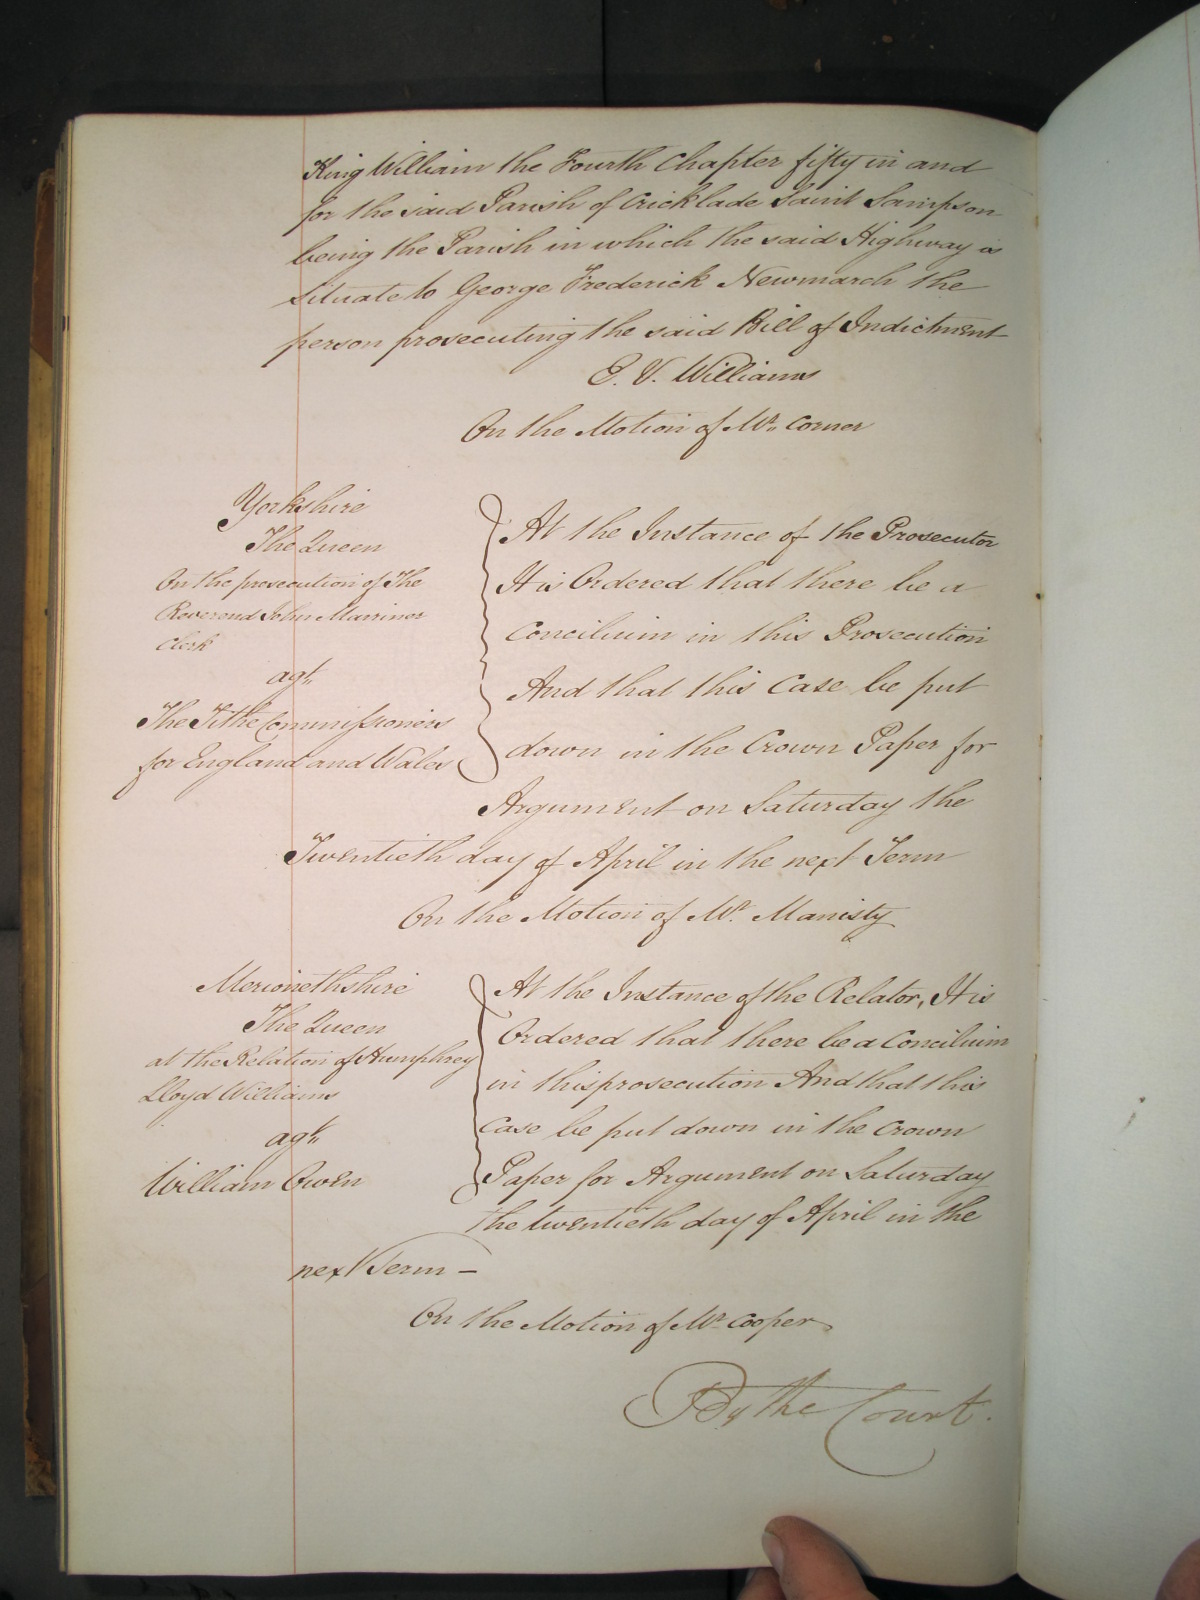 King William the Fourth Chapter fifty in and
for the said Parish of Cricklade Saint Sampson
being the Parish in which the said Highway is
Situate to George Frederick Newmarch the
person prosecuting the said Bill of Indictment
E. V. Williams
On the Motion of Mr. Corner
Yorkshire
The Queen
On the prosecution of The
Reverend John Marriner
Clerk
agt.
The Tithe Commissioners
for England and Wales
At the Instance of the Prosecutor
It is Ordered that there be a
Concilium in this Prosecution
And that this Case be put
down in the Crown Paper for
Argument on Saturday the
Twentieth day of April in the next Term
On the Motion of Mr. Manisty
Merionethshire
The Queen
at the Relation of Humphrey
Lloyd Williams
agt.
William Owen
At the Instance of the Relator, It is
Ordered that there be a Concilium
in this prosecution And that this
Case be put down in the Crown
Paper for Argument on Saturday
the twentieth day of April in the
next Term –
On the Motion of Mr. Cooper
By the Court.